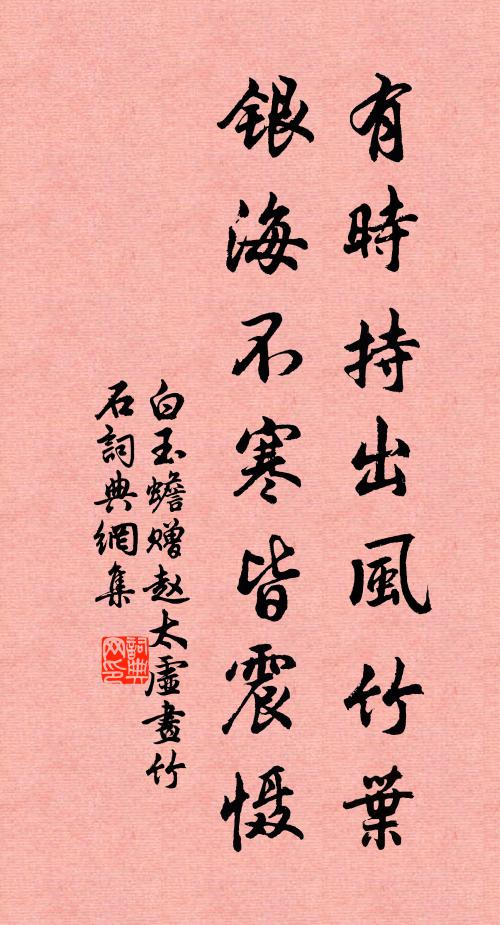 有時持出風竹葉
銀海不寒皆震慑
白玉蟾赠赵太虛畫竹
石詞典網集
詞典网印